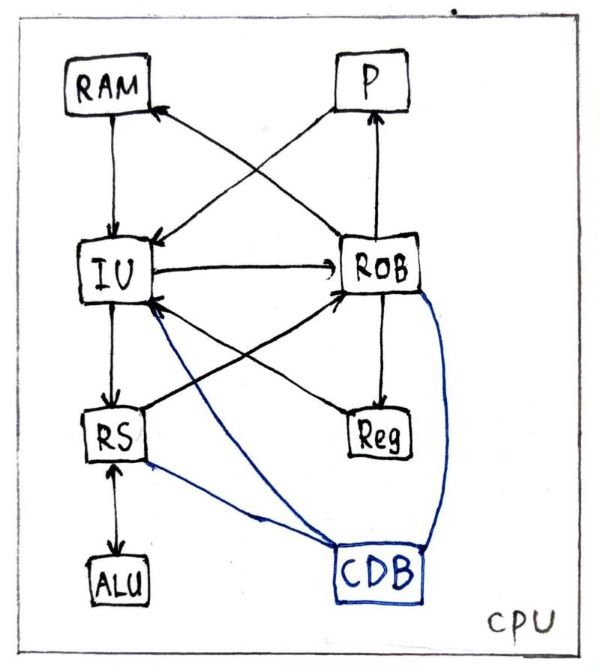 RAM
P
IU
ROB
RS
Reg
ALU
CDB
CPU